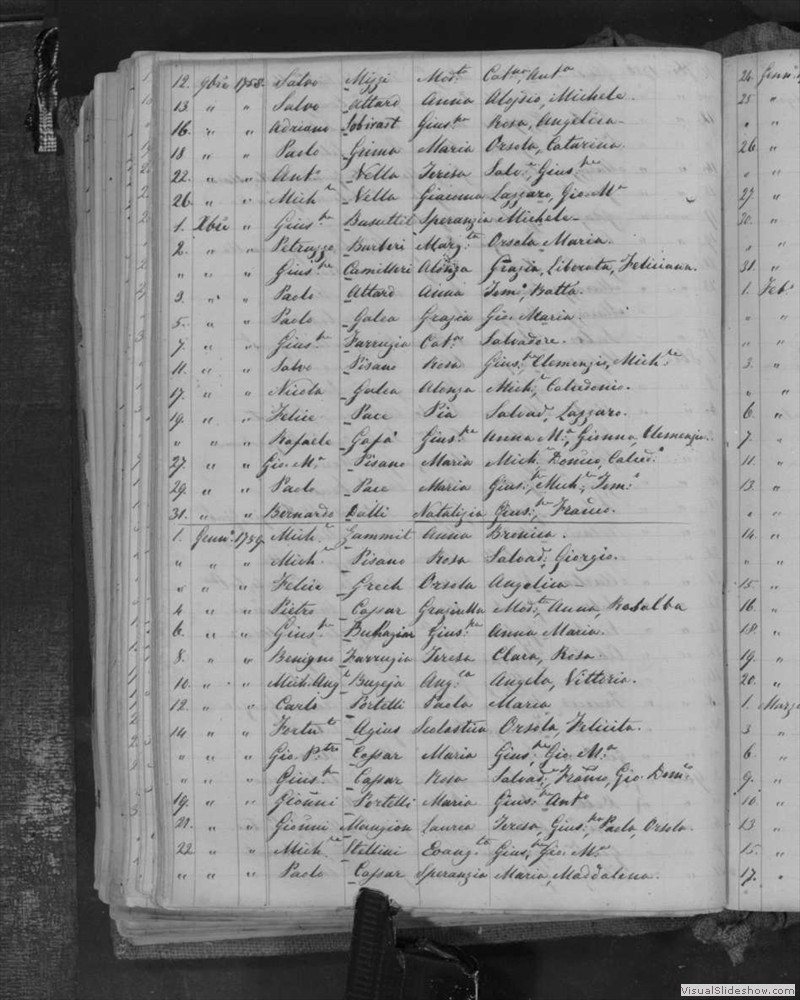 12. 9bre 1758. Salvo Mizzi Mod.ta Cat.na, Ant.a
13. " " Salvo Attard Anna Aloysio, Michele.
16. " " Adriano Sobirast Gius.pa Rosa, Angelica.
18. " " Paolo Grima Maria Orsola, Catarina.
22. " " Ant.o Nella Teresa Salv.e, Gius.pe
26. " " Mich.e Nella Giacoma Lazzaro, Gio. M.a
1. Xbre " Gius.pe Busuttil Speranzia Michele.
2. " " Petruzzo Barberi Marg.ta Orsola Maria.
" " " Gius.pe Camilleri Alonza Grazia, Liberata, Feliciana.
3. " " Paolo Attard Anna Tom.o, Batta.
5. " " Paolo Galea Grazia Gio. Maria.
7. " " Gius.pe Farrugia Cat.a Salvadore.
11. " " Salvo Pisano Rosa Gius.pe, Clemenzio, Mich.e
17. " " Nicola Galea Alonza Mich.e, Calcedonio.
19. " " Felice Pace Pia Salvad.e, Lazzaro.
" " " Rafaele Gafà Gius.pa Anna M.a, Gionna, Clemenzia.
27. " " Gio. M.a Pisano Maria Mich.e Domco, Calced.o
29. " " Paolo Pace Maria Gius.e, Mich.e, Tom.o
31. " " Bernardo Dalli Natalizia Gius.pe, Franco.
1. Genn.o 1759. Mich.e Zammit Anna Bronica.
" " " Mich.e Pisano Rosa Salvad.e, Giorgio.
" " " Felice Grech Orsola Angelica
4 " " Pietro Cassar Graziulla Mod.a, Anna, Rosalba
6. " " Gius.pe Buhagiar Gius.pa Anna Maria.
8. " " Benigno Farrugia Teresa Clara, Rosa.
10. " " Mich.Ang.o Bugeja Ang.ca Angela, Vittoria.
12. " " Carlo Portelli Paola Maria
14 " " Fortu.to Agius Scolastica Orsola, Felicita.
" " " Gio. P.tro Cassar Maria Gius.pe, Gio. M.a
" " " Gius.pe Cassar Rosa Salvad.e, Franco, Gio. Dom.o
19. " " Gionni Portelli Maria Gius.e Ant.o
21. " " Gionni Mangion Laurea Teresa, Gius.pa Paola, Orsola.
22. " " Mich.e Stellini Evang.ta Gius.e, Gio. M.a
" " " Paolo Cassar Speranzia Maria, Maddalena.
24. Genn.o
25 "
" "
26. "
" "
27. "
30. "
" "
31. "
1. Feb.o
" "
" "
3. "
" "
6. "
7. "
11. "
13. "
" "
14. "
" "
15. "
16. "
18. "
19. "
20. "
1. Marzo
3 "
6 "
9. "
10. "
13 "
15. "
17. "
VisualSlideshow.com